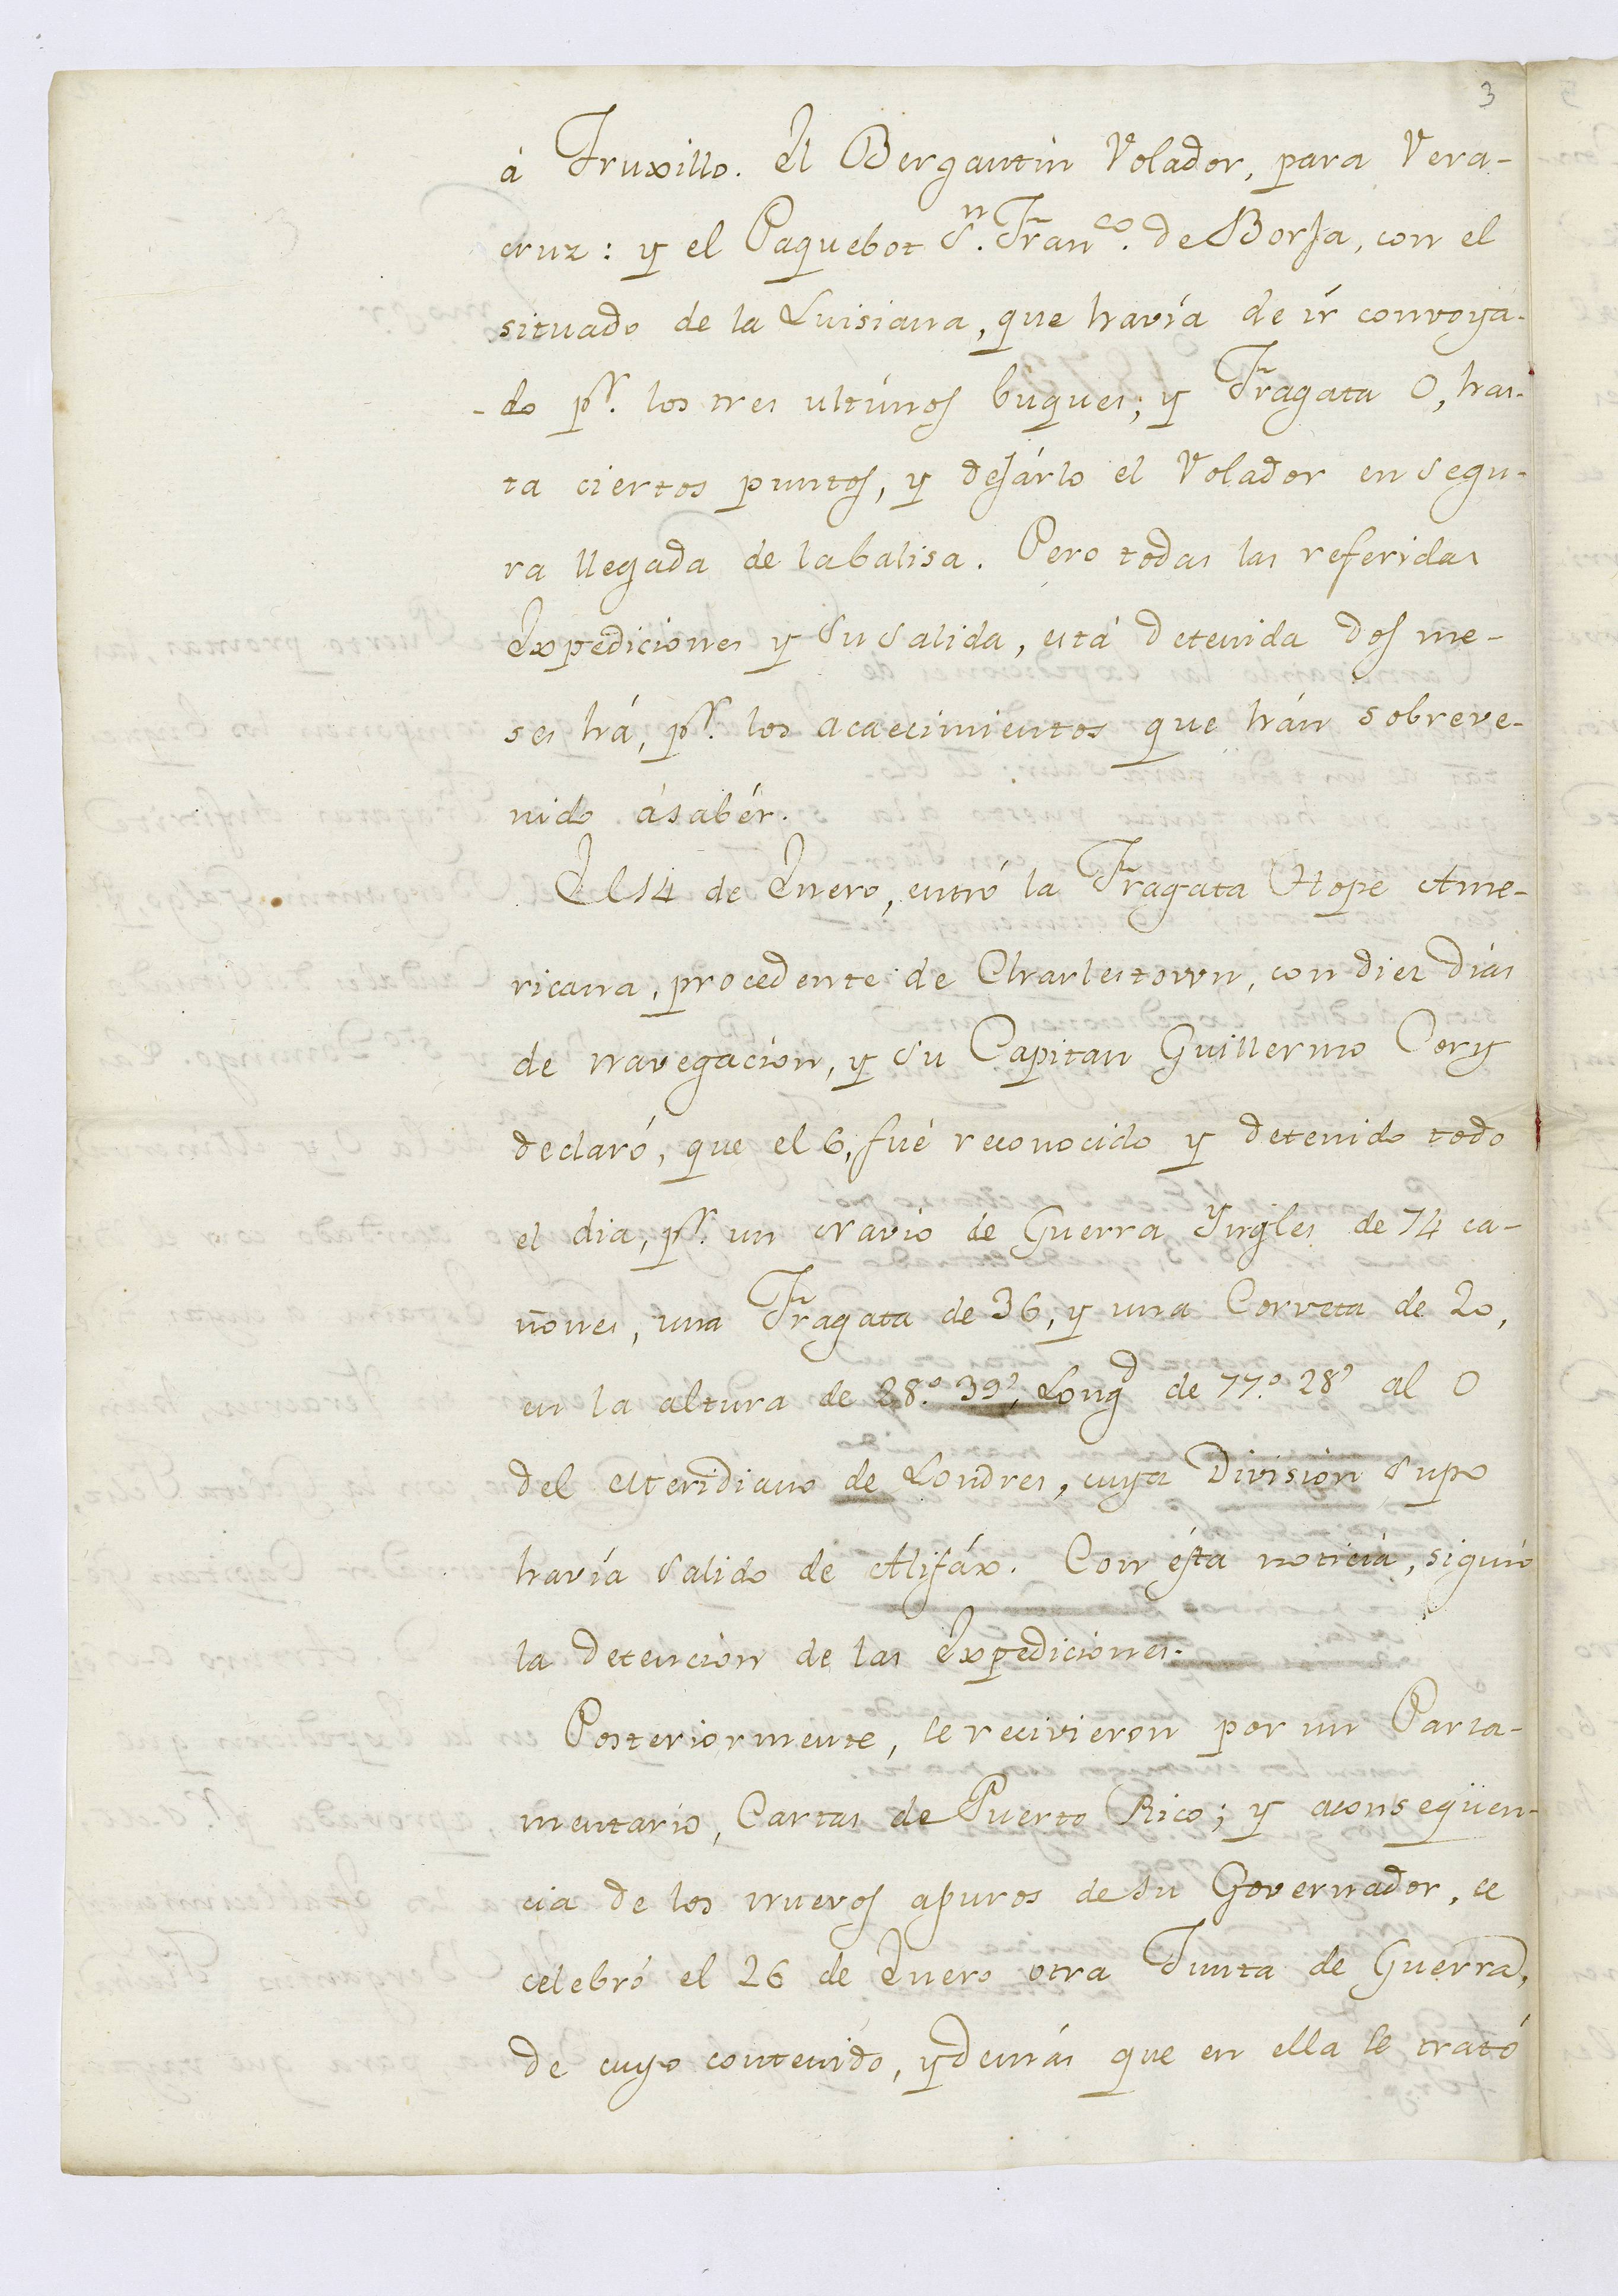 3
á Truxillo. El Bergantin Volador, para Vera-
cruz: y el Paquebot Sn. Franco. de Borja, con el
situado de la Luisiana, que havía de ir convoya-
-do pr. los tres ultimos buques; y Fragata O, has-
ta ciertos puntos, y dejárlo el Volador en segu-
ra llegada de labalisa. Pero todas las referidas
Expediciones y su salida, está detenida dos me-
ses há, pr. los acaecimientos que hán sobreve-
nido ásabér.
El 14 de Enero, entró la Fragata Hope Ame-
ricana, procedente de Charlestown, con dies dias
de navegacion, y su Capitan Guillermo Cory
declaró, que el 6, fué reconocido y detenido todo
el dia, pr. un Navio de Guerra Yngles de 74 ca-
ñones, una Fragata de 36, y una Corveta de 20,
en la altura de 28.° 39', Longd de 77.° 28' al O
del Meridiano de Londres, cuya Division supo
havía salido de Alifáx. Con ésta noticia, siguió
la detencion de las Expediciones.
Posteriormente, se recivieron por un Parla-
mentario, Cartas de Puerto Rico; y aconseqüen-
cia de los nuevos apuros de su Governador, se
celebró el 26 de Enero otra Junta de Guerra,
de cuyo contenido, ydemás que en ella se trató